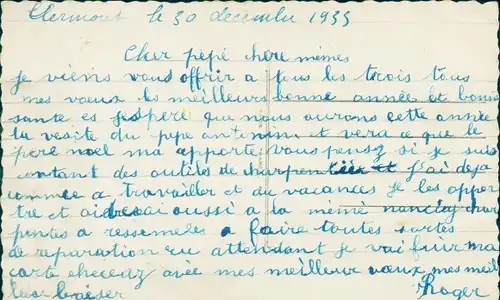 Clermont le 30 decembre 1933
Cher pepé chere mémés
je viens vous offrir a tous les trois tous
mes vœux les meilleurs bonne année et bonne
sante es jespere que nous aurons cette année
la vesite du pepe antonin et vera ce que le
pere noel ma apporte vous pensez si je suis
contant des outils de charpentier et j'ai deja
commce a travailler et du vacances je les appor
tre et aiderai aussi a la mémé char
pentes a ressemeles a faire toutes sortes
de reparation en attendant je vai finir ma
carte avec mes meilleur vœux mes meil
leur baiser
Roger